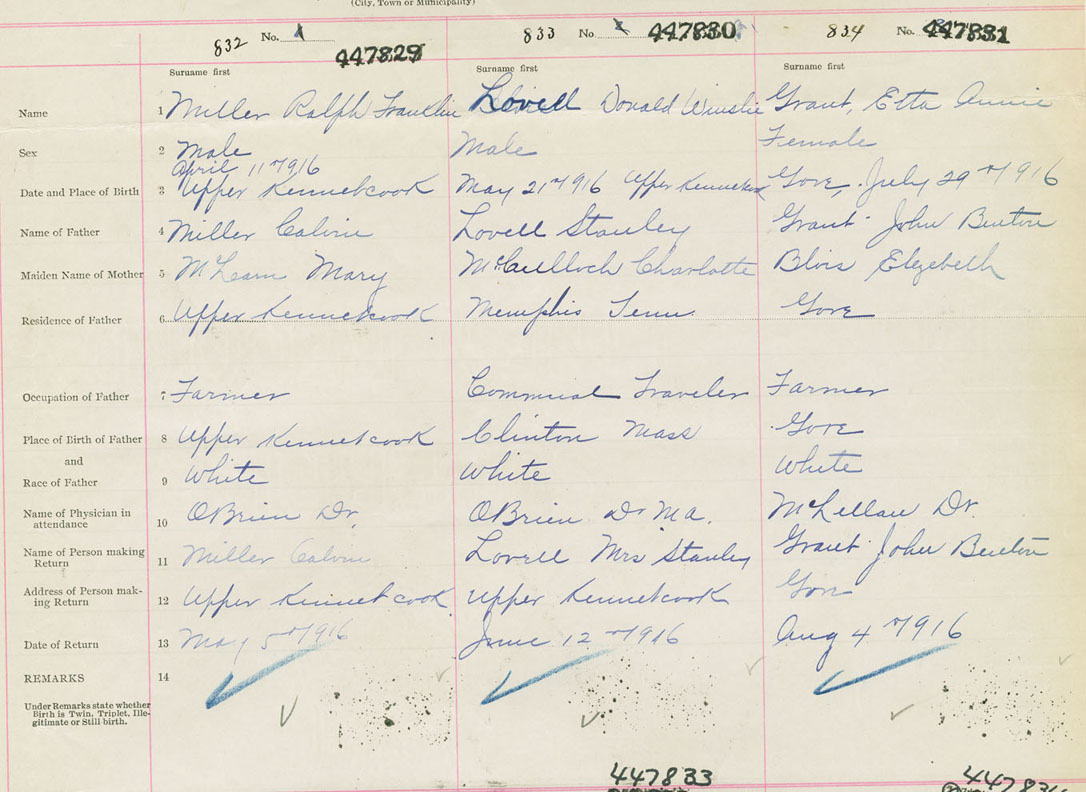 (City, Town or Municipality)
832 No. 1 447829 833 No. 2 447830 834 No. 447831
Surname first Surname first Surname first
Name 1 Miller Ralph Franklin Lovell Donald Winslie Grant, Etta Annie
Sex 2 Male Male Female
April 11th 1916
Date and Place of Birth 3 Upper Kennetcook May 21st 1916 Upper Kennetcook Gore, July 29th 1916
Name of Father 4 Miller Calvin Lovell Stanley Grant John Burton
Maiden Name of Mother 5 McLearn Mary McCulloch Charlotte Blois Elezebeth
Residence of Father 6 Upper Kennetcook Memphis Tenn. Gore
Occupation of Father 7 Farmer Commercial Traveler Farmer
Place of Birth of Father 8 Upper Kennetcook Clinton Mass Gore
and
Race of Father 9 White White White
Name of Physician in
attendance 10 OBrien Dr. OBrien Dr Ma. McLellan Dr.
Name of Person making
Return 11 Miller Calvin Lovell Mrs Stanley Grant John Burton
Address of Person mak-
ing Return 12 Upper Kennetcook Upper Kennetcook Gore
Date of Return 13 May 5th 1916 June 12th 1916 Aug 4th 1916
REMARKS 14
Under Remarks state whether
Birth is Twin, Triplet, Ille-
gitimate or Still birth.
447833